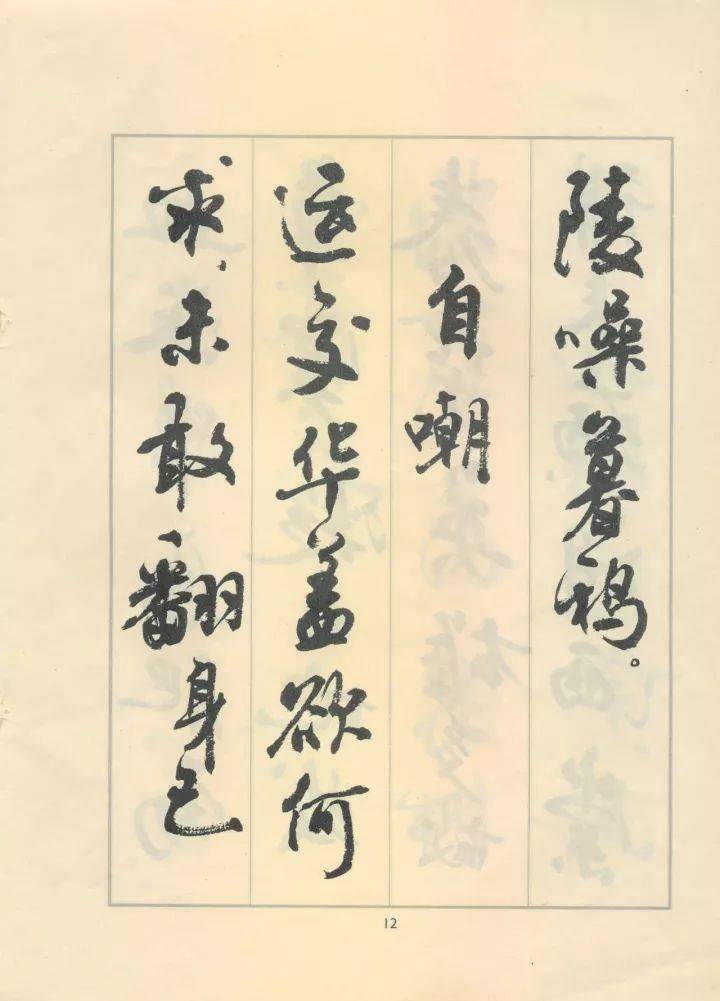 陵噪暮鸦。
自嘲
运交华盖欲何
求，未敢翻身已
12